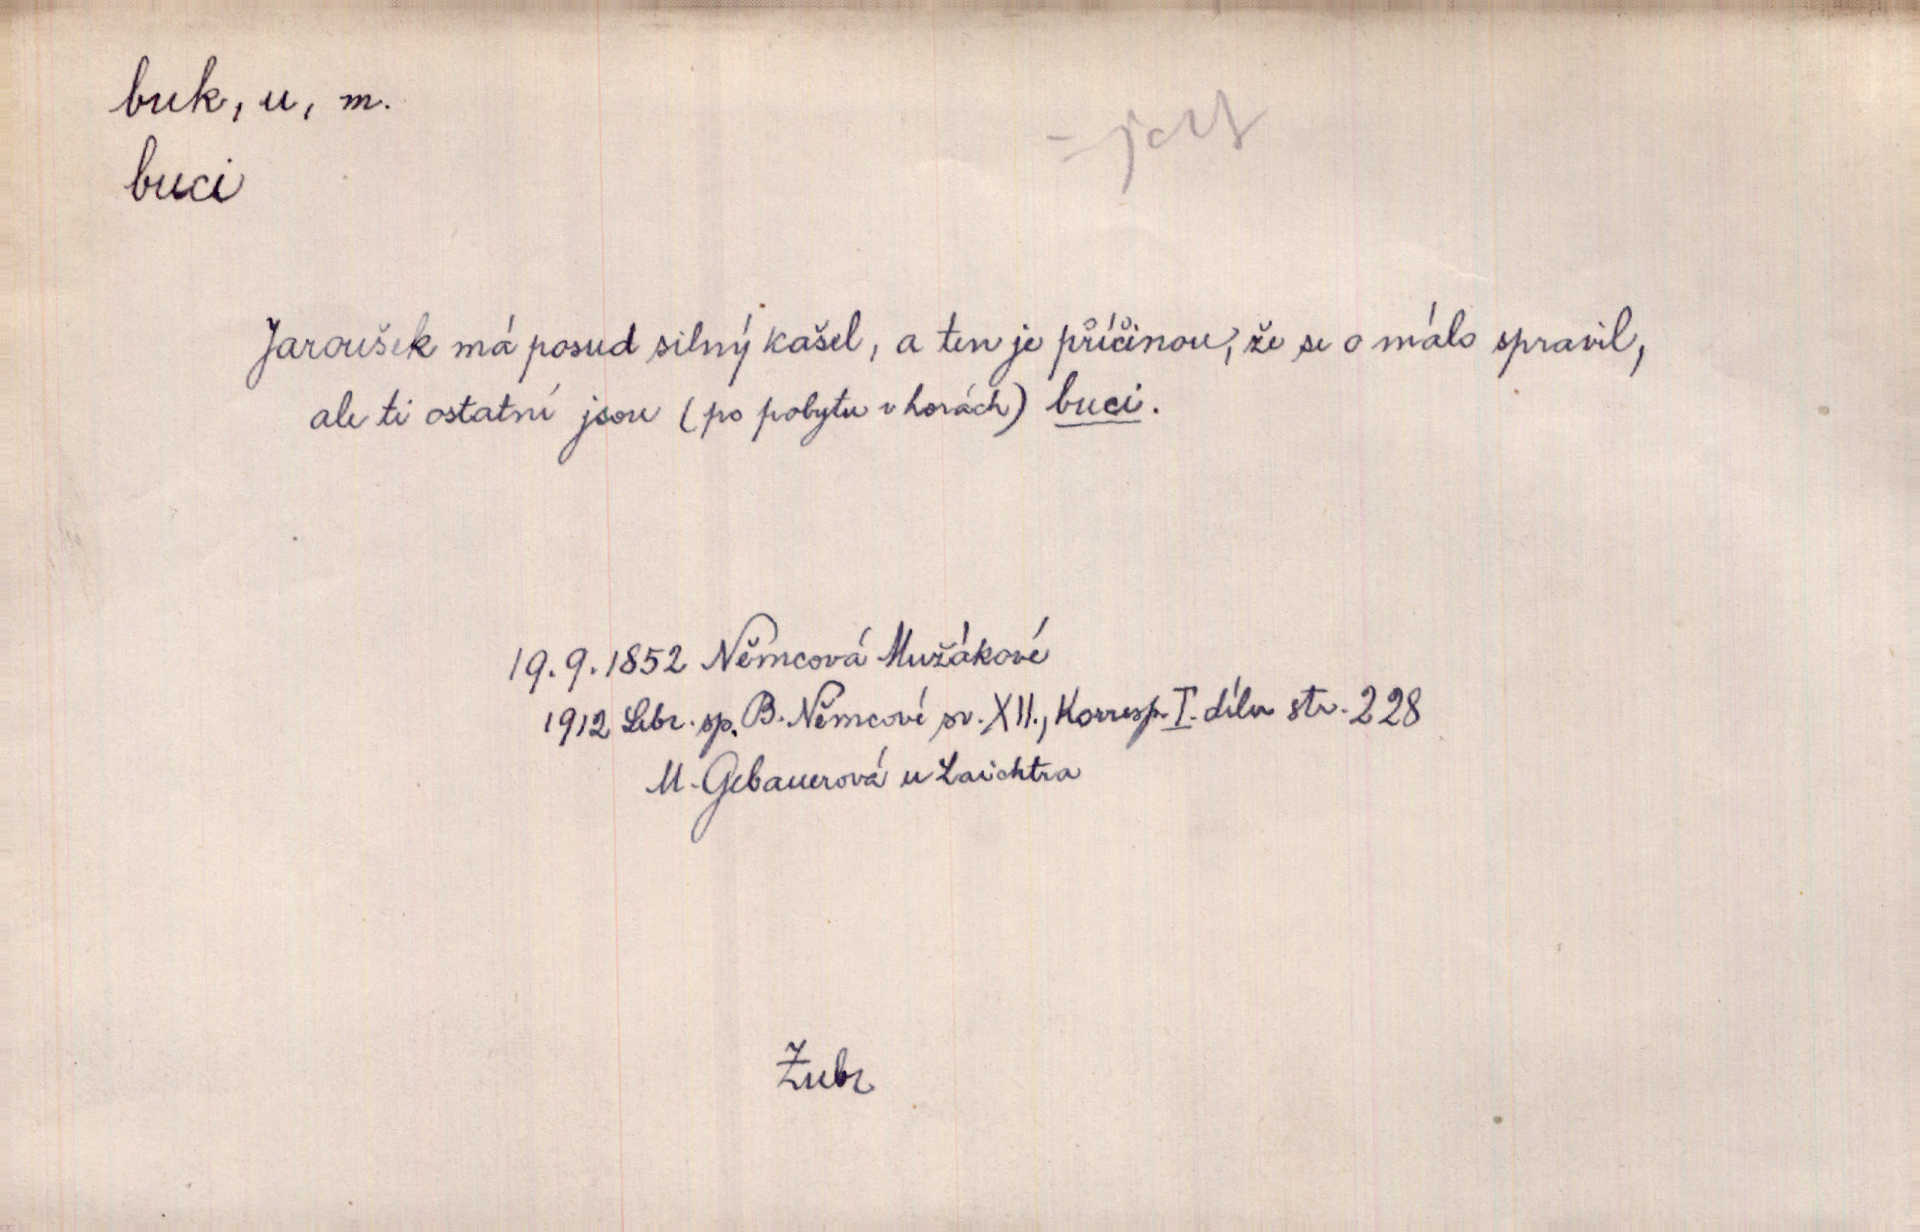 buk, u, m.
buci
Jaroušek má posud silný kašel, a ten je příčinou, že se o málo spravil,
ale ti ostatní jsou (po pobytu v horách) buci.
19. 9. 1852 Němcová Mužákové
1912 Sebr. sp. B. Němcové sv. XII., Korresp. I. dílu str. 228
M. Gebauerová u Laichtra
Zubr